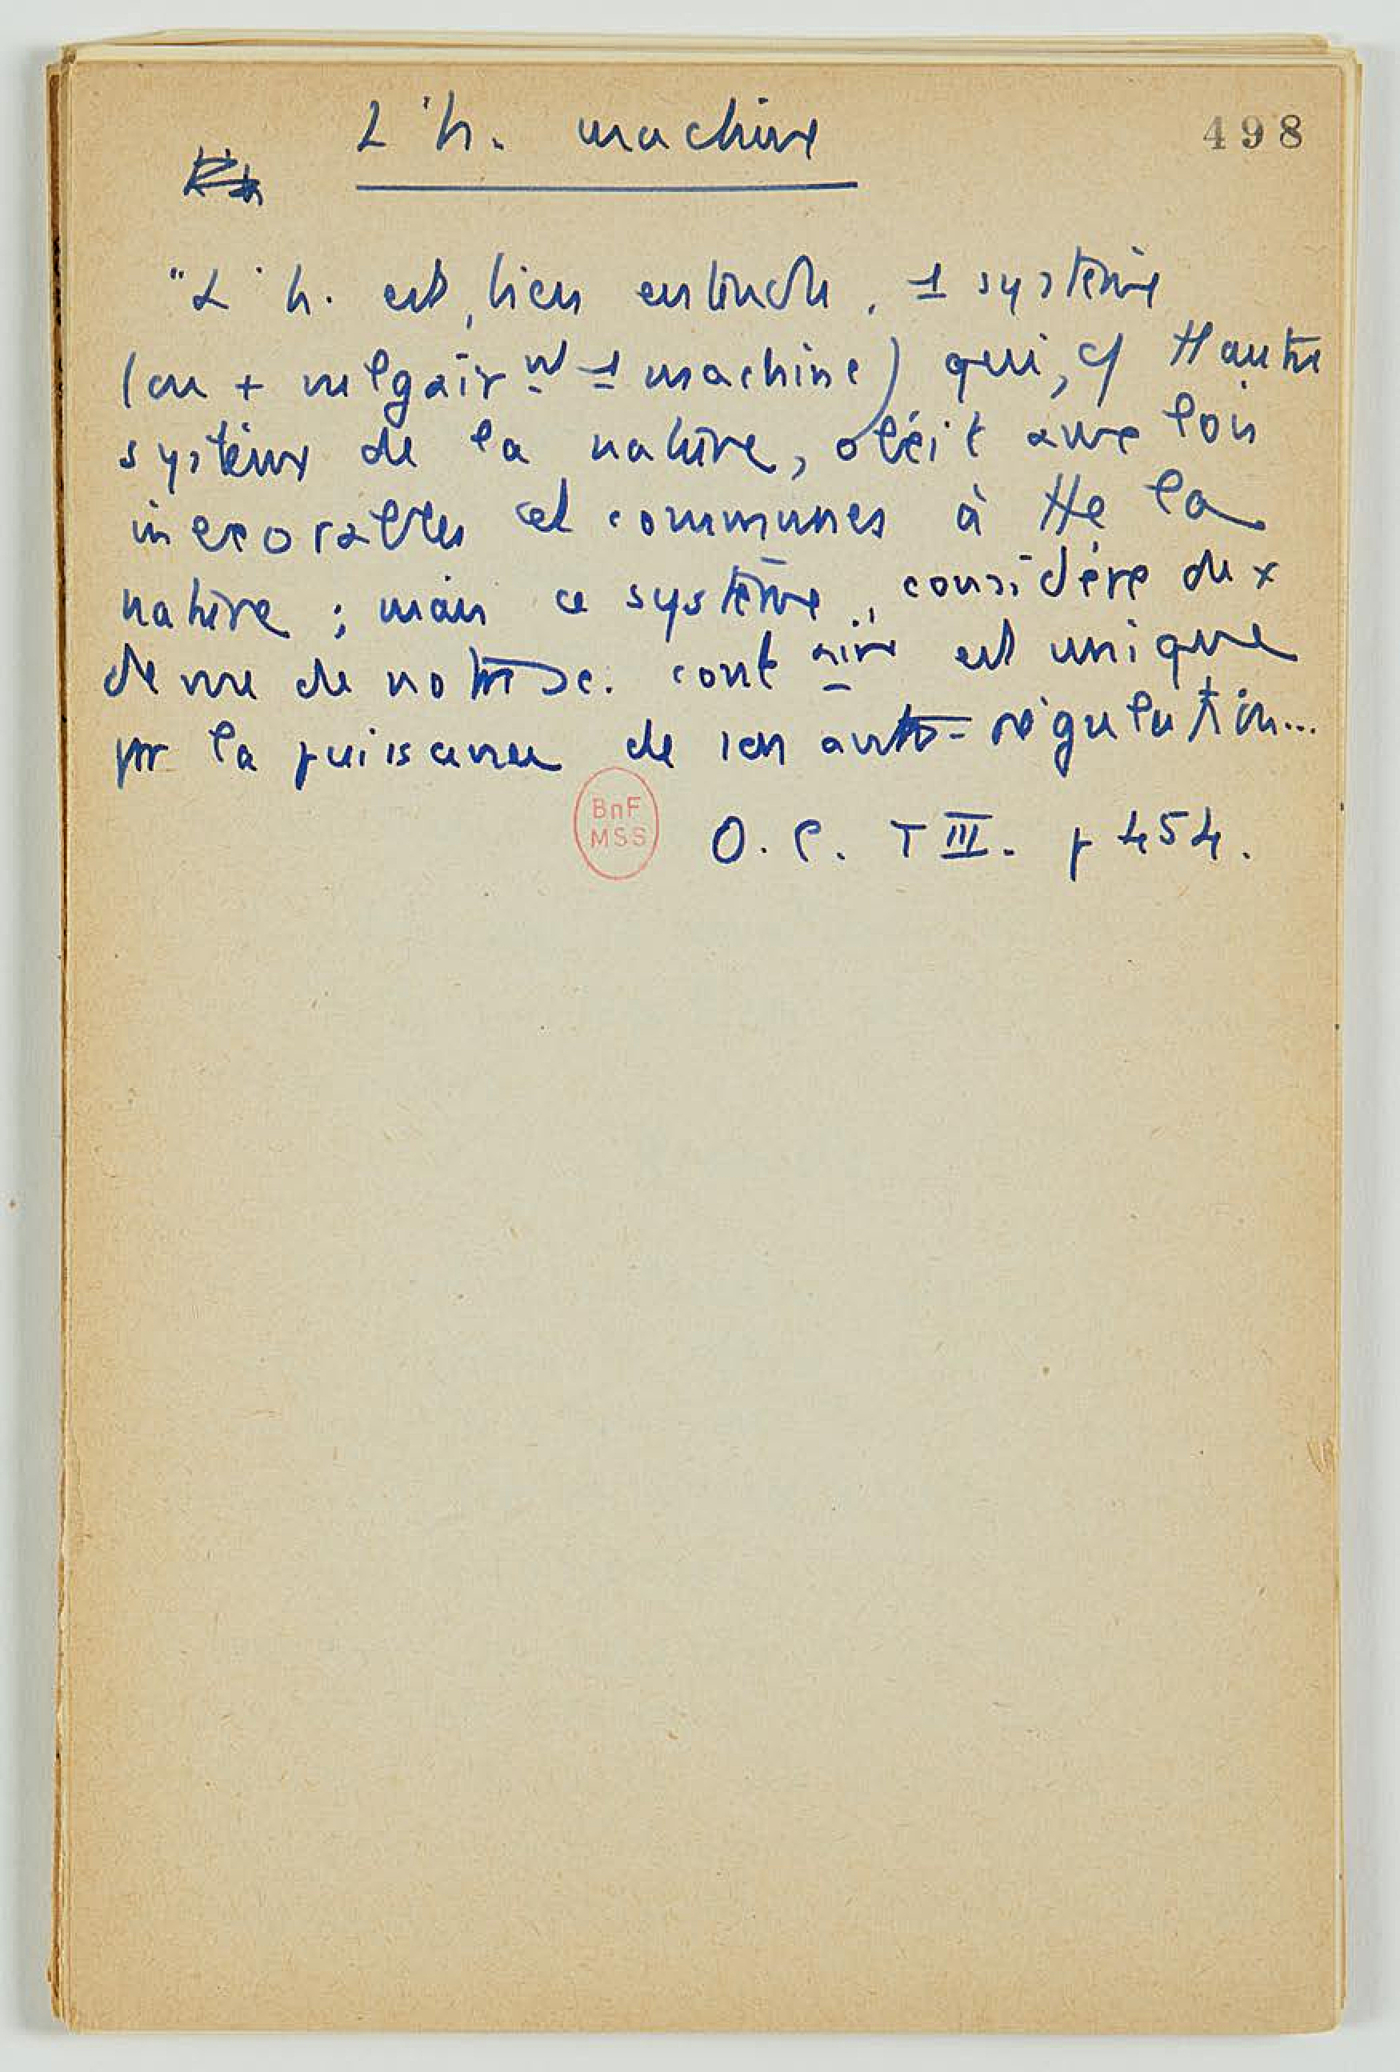 L'h. machine
498
"L'h. est, bien entendu, 1 système
(ou + vulgair nt 1 machine) qui, cf tt autre
système de la nature, obéit aux lois
inexorables et communes à tte la
nature ; mais ce système, considéré du x
de vue de no sc. cont aire est unique
pr la puissance de son auto-régulation...
BnF
MSS
O. C. T III. p 454.